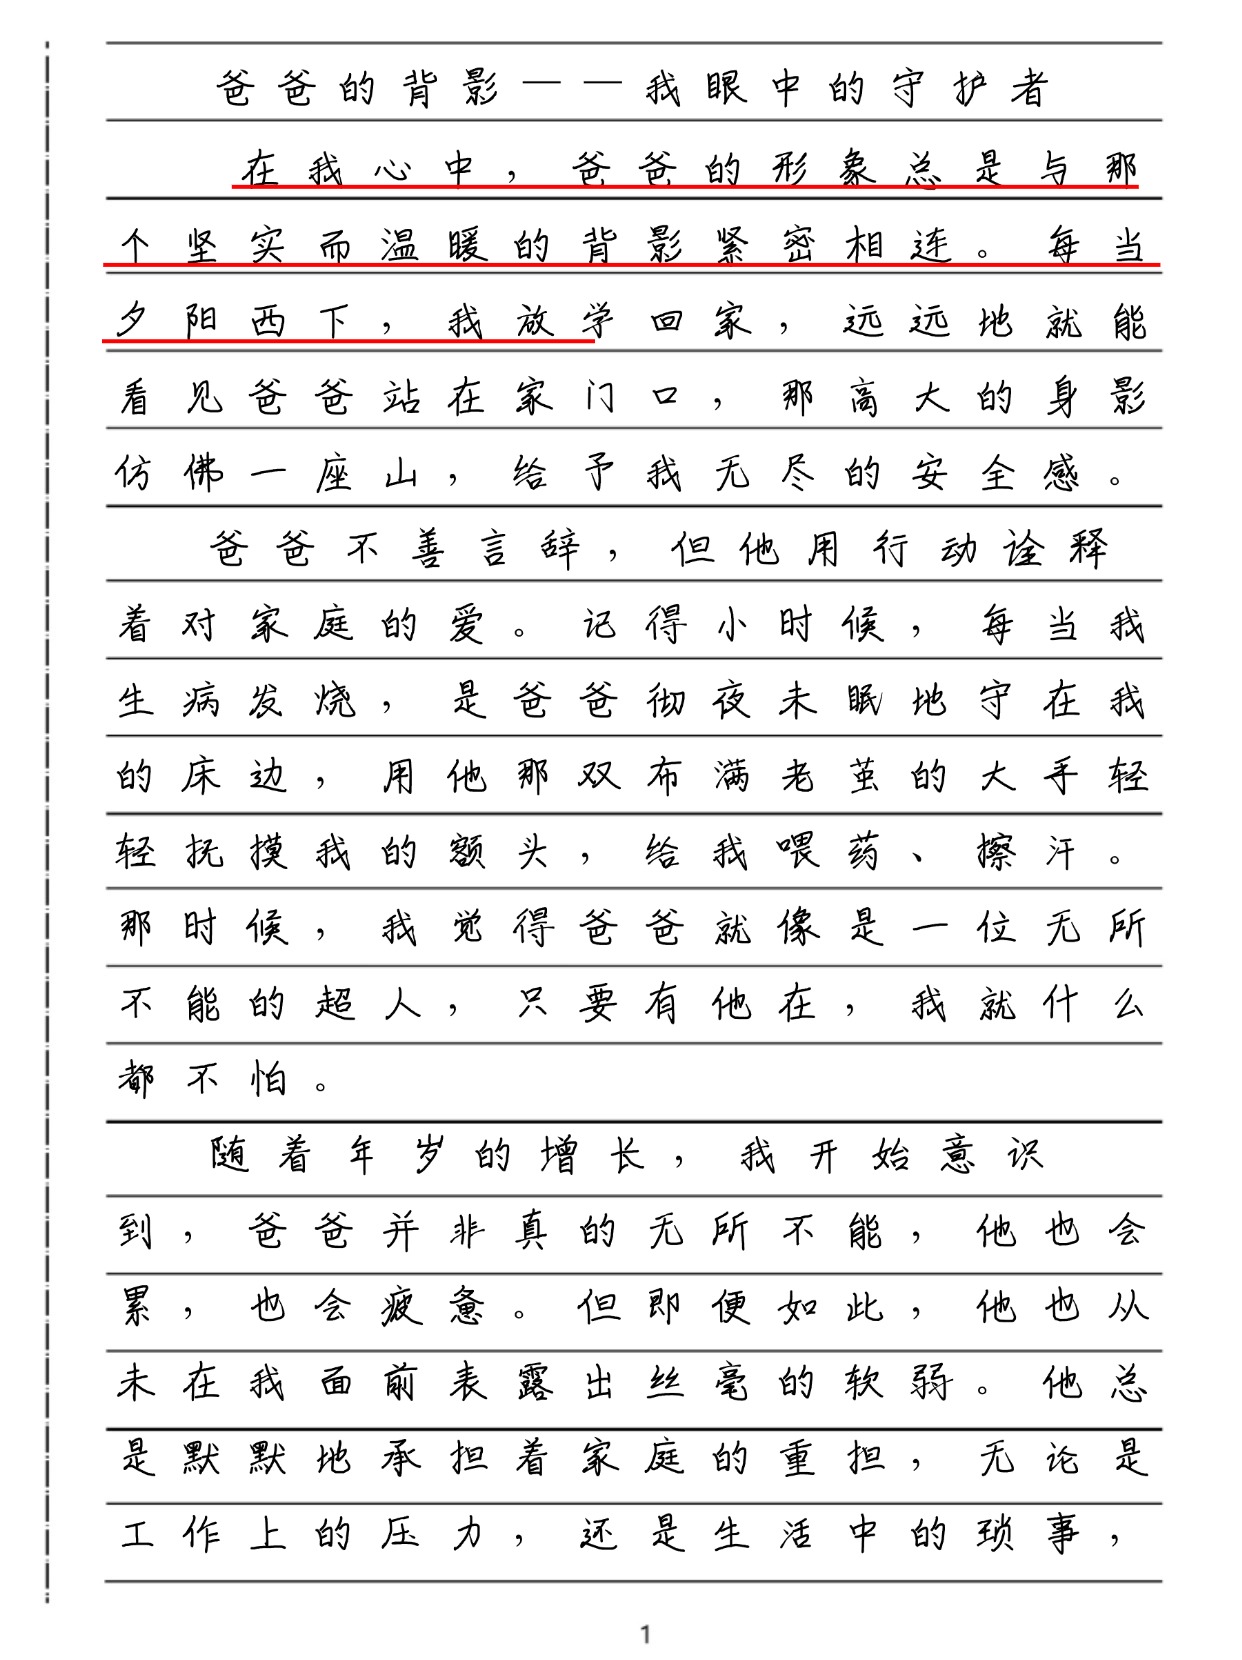 爸爸的背影——我眼中的守护者
在我心中，爸爸的形象总是与那
个坚实而温暖的背影紧密相连。每当
夕阳西下，我放学回家，远远地就能
看见爸爸站在家门口，那高大的身影
仿佛一座山，给予我无尽的安全感。
爸爸不善言辞，但他用行动诠释
着对家庭的爱。记得小时候，每当我
生病发烧，是爸爸彻夜未眠地守在我
的床边，用他那双布满老茧的大手轻
轻抚摸我的额头，给我喂药、擦汗。
那时候，我觉得爸爸就像是一位无所
不能的超人，只要有他在，我就什么
都不怕。
随着年岁的增长，我开始意识
到，爸爸并非真的无所不能，他也会
累，也会疲惫。但即便如此，他也从
未在我面前表露出丝毫的软弱。他总
是默默地承担着家庭的重担，无论是
工作上的压力，还是生活中的琐事，
1